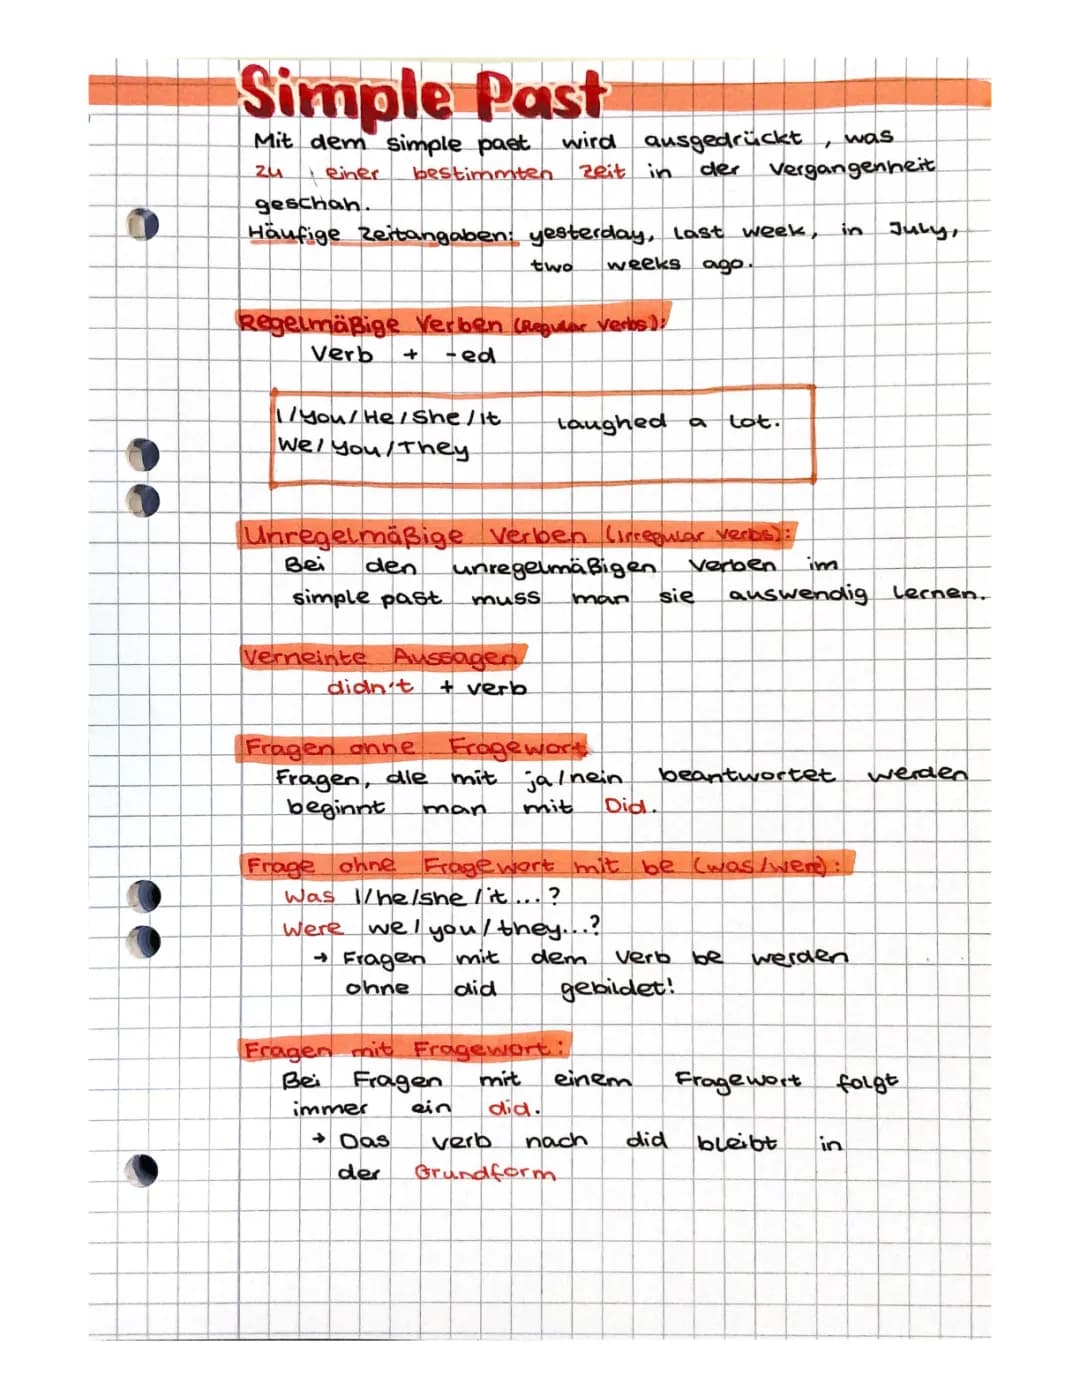 Simple Past
Mit dem simple past wird ausgedrückt, was
zu einer bestimmten Zeit in der Vergangenheit
geschah.
Häufige Zeitangaben: yesterday, last week, in July,
two weeks ago.
Regelmäßige Verben (Regular Verbs):
Verb + -ed
I/You/He/She/It laughed a lot.
We/You/They
Unregelmäßige Verben (irregular verbs):
Bei den unregelmäßigen Verben im
simple past muss man sie auswendig lernen.
Verneinte Aussagen
didn't + verb
Fragen ohne Fragewort
Fragen, die mit ja/nein beantwortet werden
beginnt man mit Did.
Frage ohne Fragewort mit be (was/were):
Was I/he/she/it...?
Were we/you/they...?
→ Fragen mit dem Verb be werden
ohne did gebildet!
Fragen mit Fragewort:
Bei Fragen mit einem Fragewort folgt
immer ein did.
→ Das Verb nach did bleibt in
der Grundform